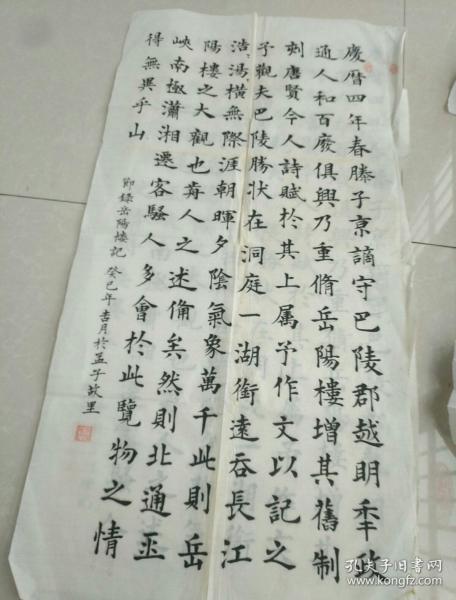 慶曆四年春滕子京謫守巴陵郡越明年政
通人和百廢俱興乃重脩岳陽樓增其舊制
刻唐賢今人詩賦於其上属予作文以記之
予觀夫巴陵勝状在洞庭一湖銜遠吞長江
浩浩湯湯橫無際涯朝暉夕陰氣象萬千此則岳
陽樓之大觀也前人之述俻矣然則北通巫
峽南極瀟湘遷客騷人多會於此覽物之情
得無異乎
節錄岳陽樓記 癸巳年吉月於孟子故里
孔夫子旧书网
www.kongfz.com